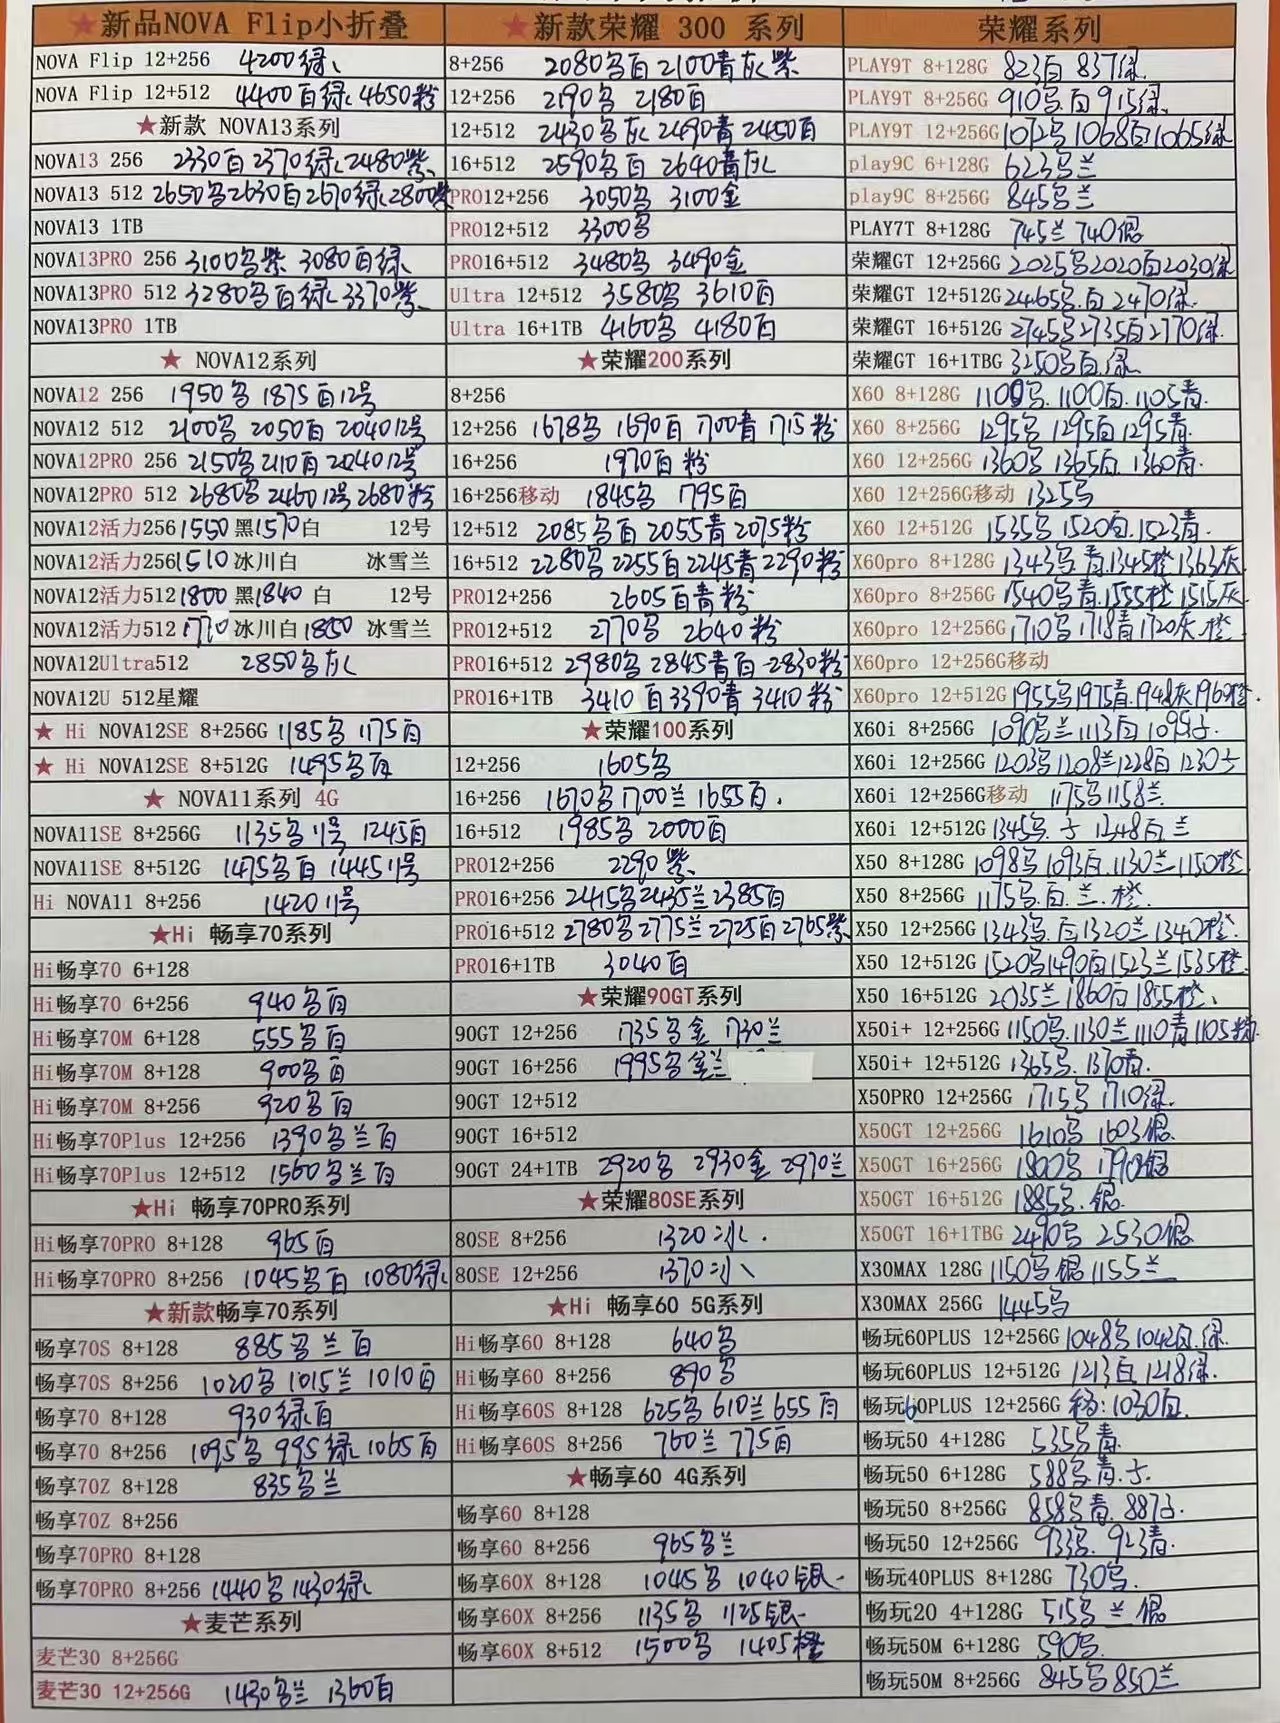 ★新品NOVA Flip小折叠
NOVA Flip 12+256 4200绿
NOVA Flip 12+512 4400白绿 4650粉
★新款 NOVA13系列
NOVA13 256 2330白 2370绿 2480紫
NOVA13 512 2650乌 2630白 2670绿 2800紫
NOVA13 1TB
NOVA13PRO 256 3100乌紫 3080白绿
NOVA13PRO 512 3280乌白绿 3370紫
NOVA13PRO 1TB
★ NOVA12系列
NOVA12 256 1950乌 1875白12号
NOVA12 512 2100乌 2050白 2040 12号
NOVA12PRO 256 2150乌 2110白 2040 12号
NOVA12PRO 512 2680乌 2460 12号 2680粉
NOVA12活力256 1550黑1570白 12号
NOVA12活力256 1510冰川白 冰雪兰
NOVA12活力512 1800黑1840白 12号
NOVA12活力512 1770冰川白1850 冰雪兰
NOVA12Ultra512 2850乌灰
NOVA12U 512星耀
★ Hi NOVA12SE 8+256G 1185乌 1175白
★ Hi NOVA12SE 8+512G 1495乌白
★ NOVA11系列 4G
NOVA11SE 8+256G 1135乌 11号 1245白
NOVA11SE 8+512G 1475乌白 1445 11号
Hi NOVA11 8+256 1420 11号
★Hi 畅享70系列
Hi畅享70 6+128
Hi畅享70 6+256 940乌白
Hi畅享70M 6+128 555乌白
Hi畅享70M 8+128 900乌白
Hi畅享70M 8+256 920乌白
Hi畅享70Plus 12+256 1390乌兰白
Hi畅享70Plus 12+512 1560乌兰白
★Hi 畅享70PRO系列
Hi畅享70PRO 8+128 965白
Hi畅享70PRO 8+256 1045乌白 1080绿
★新款畅享70系列
畅享70S 8+128 885乌兰白
畅享70S 8+256 1020乌 1015兰 1010白
畅享70 8+128 930绿白
畅享70 8+256 1095乌 995绿 1065白
畅享70Z 8+128 835乌兰
畅享70Z 8+256
畅享70PRO 8+128
畅享70PRO 8+256 1440乌 1430绿
★麦芒系列
麦芒30 8+256G
麦芒30 12+256G 1430乌兰 1360白
★新款荣耀 300 系列
8+256 2080乌白 2100青灰紫
12+256 2190乌 2180白
12+512 2430乌灰 2490青 2450白
16+512 2590乌白 2640青灰
PRO12+256 3050乌 3100金
PRO12+512 3300乌
PRO16+512 3480乌 3490金
Ultra 12+512 3580乌 3610白
Ultra 16+1TB 4160乌 4180白
★荣耀200系列
8+256
12+256 1678乌 1690白 1700青 1715粉
16+256 1970白粉
16+256移动 1845乌 1795白
12+512 2085乌白 2055青 2075粉
16+512 2280乌 2255白 2245青 2290粉
PRO12+256 2605白青粉
PRO12+512 2770乌 2640粉
PRO16+512 2980乌 2845青白 2830粉
PRO16+1TB 3410白 3390青 3410粉
★荣耀100系列
12+256 1605乌
16+256 1670乌 1700兰 1655白
16+512 1985乌 2000白
PRO12+256 2290紫
PRO16+256 2415乌 2435兰 2385白
PRO16+512 2780乌 2775兰 2725白 2765紫
PRO16+1TB 3040白
★荣耀90GT系列
90GT 12+256 1735乌金 1730兰
90GT 16+256 1995乌金兰
90GT 12+512
90GT 16+512
90GT 24+1TB 2920乌 2930金 2970兰
★荣耀80SE系列
80SE 8+256 1320冰
80SE 12+256 1370冰
★Hi 畅享60 5G系列
Hi畅享60 8+128 640乌
Hi畅享60 8+256 890乌
Hi畅享60S 8+128 625乌 610兰 655白
Hi畅享60S 8+256 760兰 775白
★畅享60 4G系列
畅享60 8+128
畅享60 8+256 965乌兰
畅享60X 8+128 1045乌 1040银
畅享60X 8+256 1135乌 1125银
畅享60X 8+512 1500乌 1405橙
荣耀系列
PLAY9T 8+128G 823白 837绿
PLAY9T 8+256G 910乌.白 915绿
PLAY9T 12+256G 1072乌 1068白 1065绿
play9C 6+128G 623乌兰
play9C 8+256G 845乌兰
PLAY7T 8+128G 745兰 740银
荣耀GT 12+256G 2025乌 2020白 2030绿
荣耀GT 12+512G 2465乌.白 2470绿
荣耀GT 16+512G 2745乌 2735白 2770绿
荣耀GT 16+1TBG 3250乌白.绿
X60 8+128G 1100乌.1100白.1105青
X60 8+256G 1295乌 1295白 1295青
X60 12+256G 1360乌 1365白.1360青
X60 12+256G移动 1325乌
X60 12+512G 1535乌 1520白.1523青
X60pro 8+128G 1343乌青.1345橙 1363灰
X60pro 8+256G 1540乌青.1555橙 1515灰
X60pro 12+256G 1710乌 1718青 1720灰.橙
X60pro 12+256G移动
X60pro 12+512G 1955乌 1975青.1948灰 1960橙
X60i 8+256G 1090乌兰 1113白 1095子
X60i 12+256G 1203乌 1208兰 1228白 1230子
X60i 12+256G移动 1175乌 1158兰
X60i 12+512G 1345乌.子 1248白.兰
X50 8+128G 1098乌 1093白.1130兰 1150橙
X50 8+256G 1175乌.白.兰.橙
X50 12+256G 1343乌.白 1320兰 1340橙
X50 12+512G 1520乌 1490白 1523兰 1535橙
X50 16+512G 2035兰 1860白 1855橙
X50i+ 12+256G 1150乌.1130兰 1110青 1105粉
X50i+ 12+512G 1365乌.1370青
X50PRO 12+256G 1715乌 1710绿
X50GT 12+256G 1610乌 1603银
X50GT 16+256G 1800乌 1790银
X50GT 16+512G 1885乌.银
X50GT 16+1TBG 2490乌 2530银
X30MAX 128G 1150乌银 1155兰
X30MAX 256G 1445乌
畅玩60PLUS 12+256G 1048乌 1042白.绿
畅玩60PLUS 12+512G 1213白 1218绿
畅玩60PLUS 12+256G 移:1030白
畅玩50 4+128G 535乌青
畅玩50 6+128G 588乌青.子
畅玩50 8+256G 858乌青.887子
畅玩50 12+256G 933乌.923青
畅玩40PLUS 8+128G 730乌
畅玩20 4+128G 515乌 兰 银
畅玩50M 6+128G 590乌
畅玩50M 8+256G 845乌 850兰